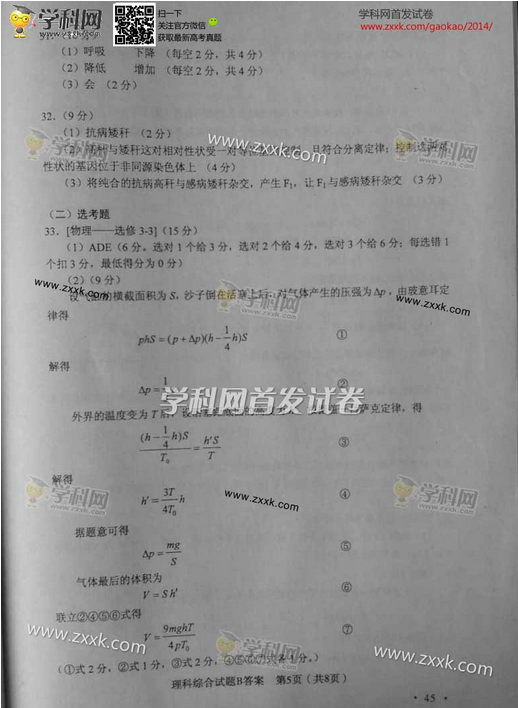 学科网
ZXXK.COM
扫一下
关注官方微信
获取最新高考真题
学科网首发试卷
www.zxxk.com/gaokao/2014/
(1)呼吸 下降 (每空2分,共4分)
(2)降低 增加 (每空2分,共4分)
(3)会 (2分)
32.(9分)
(1)抗病矮秆 (2分)
(2)高秆与矮秆这对相对性状受一对等位基因控制,且符合分离定律;控制这两对
性状的基因位于非同源染色体上 (4分)
(3)将纯合的抗病高秆与感病矮秆杂交,产生F₁,让F₁与感病矮秆杂交 (3分)
(二)选考题
33.[物理——选修3-3](15分)
(1)ADE(6分。选对1个给3分,选对2个给4分,选对3个给6分;每选错1
个扣3分,最低得分为0分)
(2)(9分)
设气缸的横截面积为S,沙子倒在活塞上后,对气体产生的压强为Δp,由玻意耳定
律得
phS = (p + Δp)(h − 1/4 h)S ①
解得
Δp = 1 ②
学科网首发试卷
外界的温度变为T后, 萨克定律,得
(h − 1/4 h)S / T₀ = h'S / T ③
解得
h' = 3T/4T₀ h ④
据题意可得
Δp = mg/S ⑤
气体最后的体积为
V = Sh' ⑥
联立②④⑤⑥式得
V = 9mghT/4pT₀ ⑦
(①式2分,②式1分,③式2分,④⑤⑥⑦式各1分。)
理科综合试题B答案 第5页(共8页)
· 45 ·
www.zxxk.com
www.zxxk.com
www.zxxk.com
www.zxxk.com
www.zxxk.com
www.zxxk.com